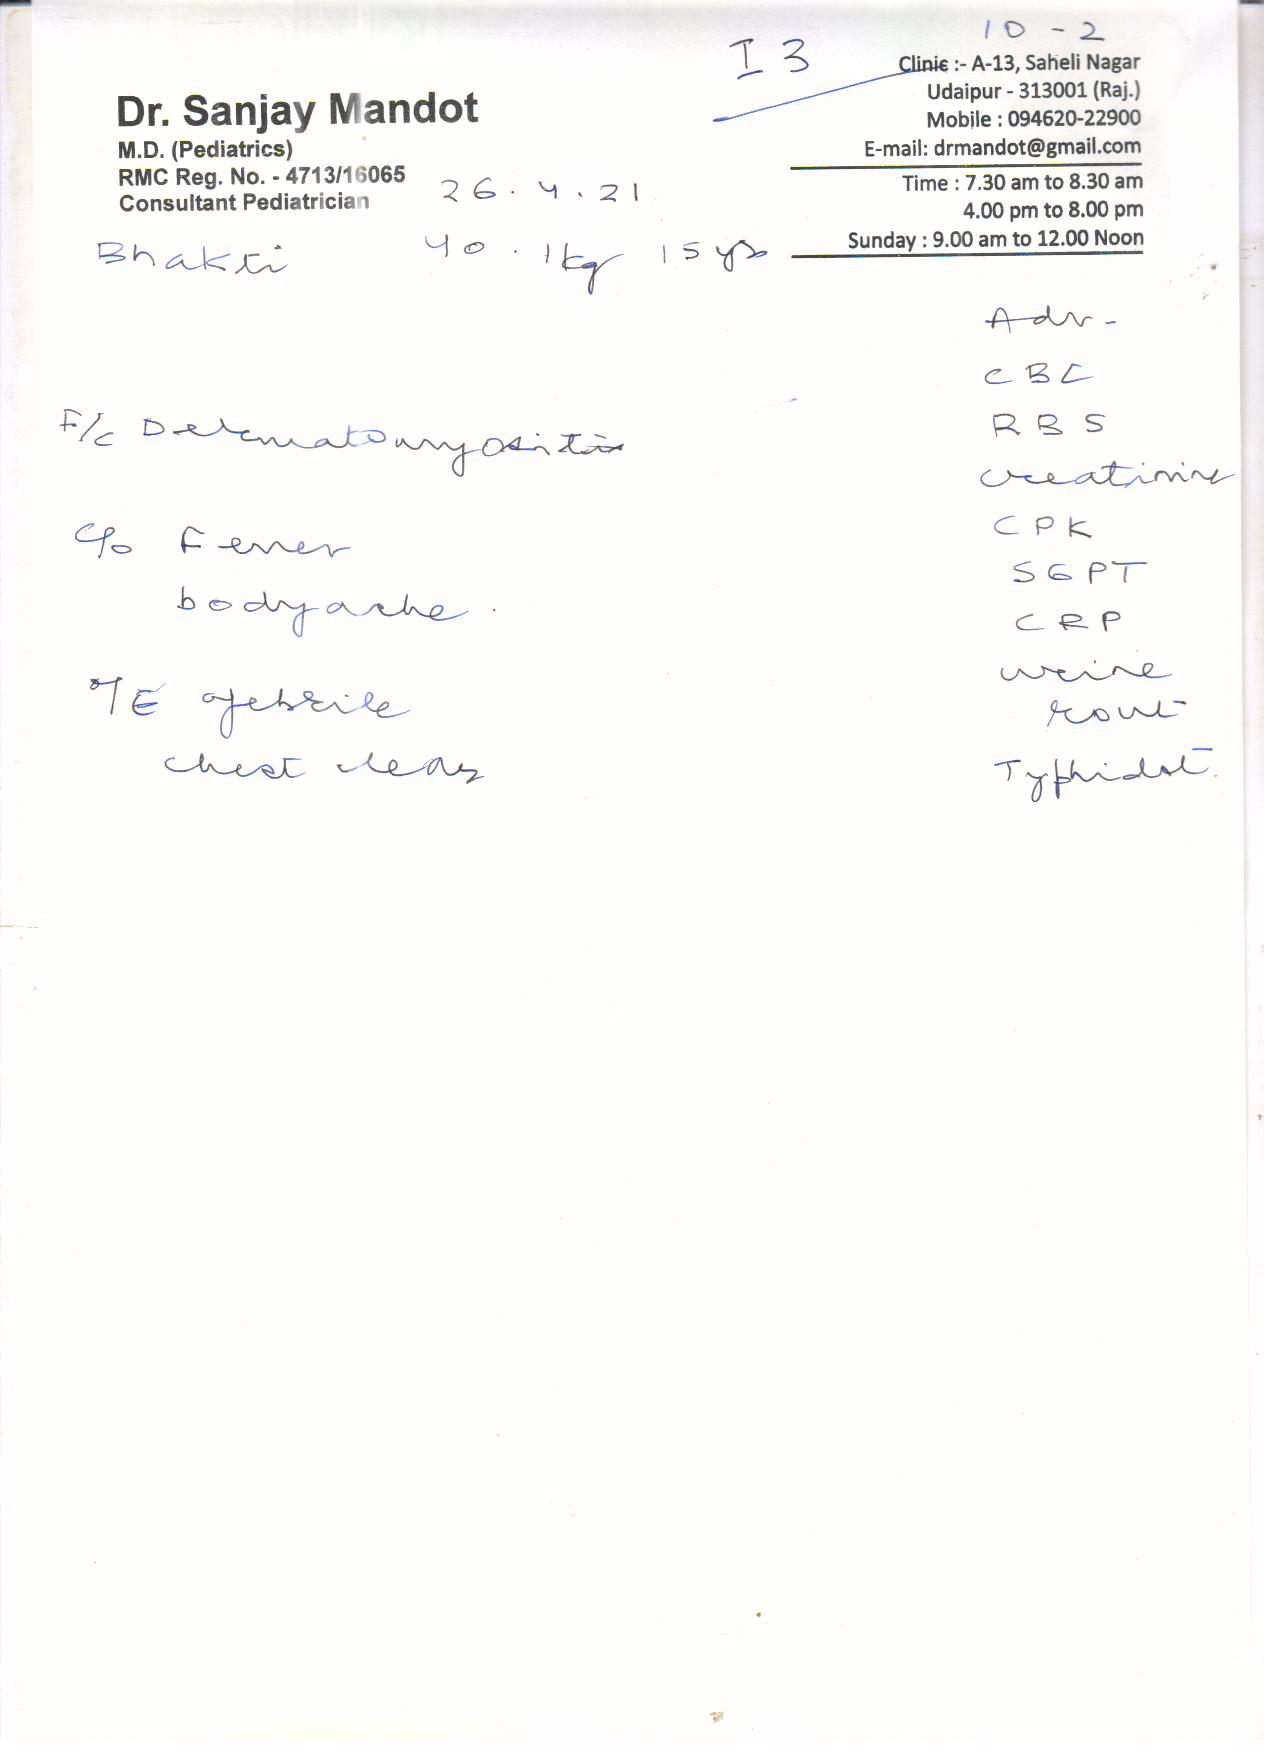 I 3
10 - 2
Dr. Sanjay Mandot
M.D. (Pediatrics)
RMC Reg. No. - 4713/16065
Consultant Pediatrician
Clinic :- A-13, Saheli Nagar
Udaipur - 313001 (Raj.)
Mobile : 094620-22900
E-mail: drmandot@gmail.com
Time : 7.30 am to 8.30 am
4.00 pm to 8.00 pm
Sunday : 9.00 am to 12.00 Noon
26.4.21
Bhakti 40.1kg 15 yrs
F/c Dermatomyositis
c/o Fever
bodyache.
O/E afebrile
chest clear
Adv -
CBC
RBS
creatinine
CPK
SGPT
CRP
urine
rout
Typhidot